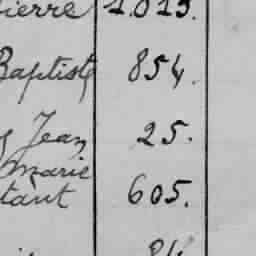 ierre 1.013.
Baptiste 854.
Jean 25.
marie
tant 605.